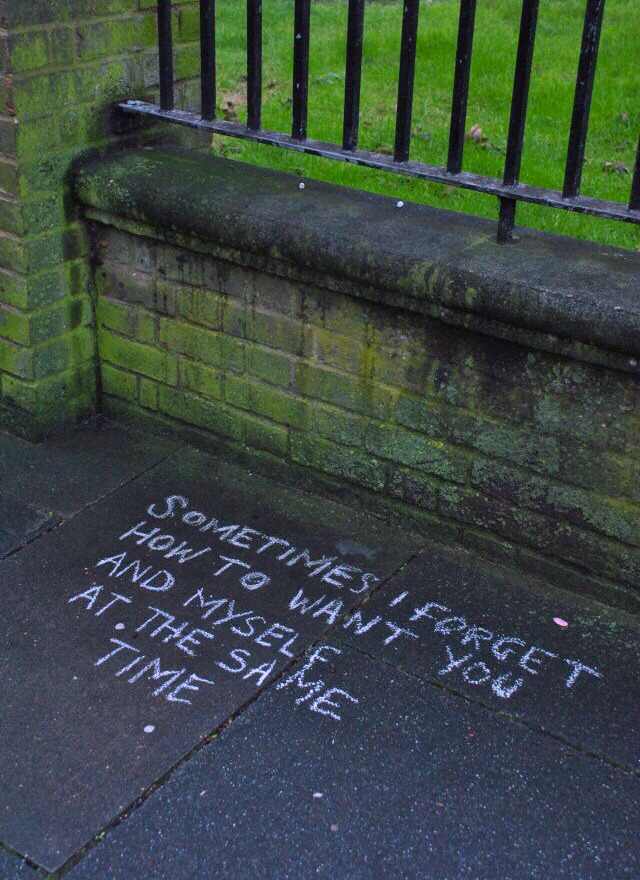 SOMETIMES I FORGET
HOW TO WANT YOU
AND MYSELF
AT THE SAME
TIME